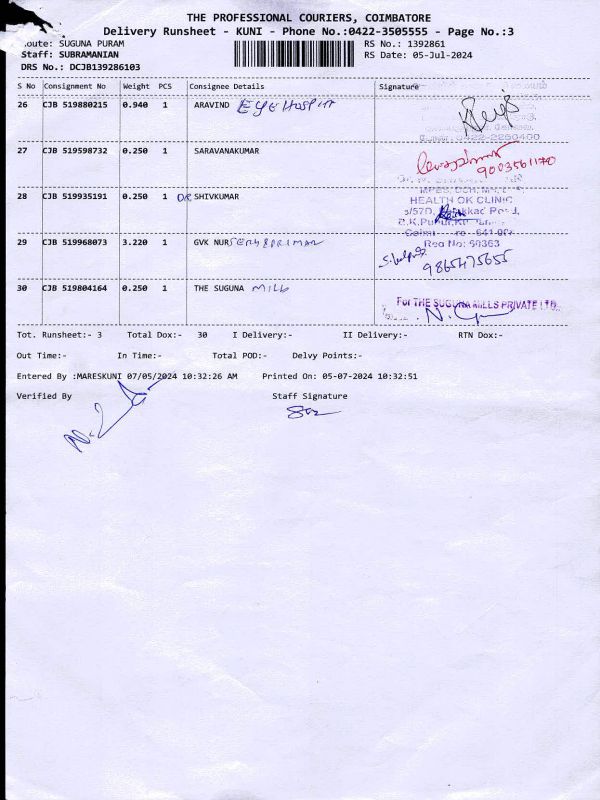 THE PROFESSIONAL COURIERS, COIMBATORE
Delivery Runsheet - KUNI - Phone No.:0422-3505555 - Page No.:3
Route: SUGUNA PURAM
RS No.: 1392861
Staff: SUBRAMANIAN
RS Date: 05-Jul-2024
DRS No.: DCJB139286103
S No Consignment No Weight PCS Consignee Details Signature
26 CJB 519880215 0.940 1 ARAVIND EYE HOSPIT
0422-2260400
27 CJB 519598732 0.250 1 SARAVANAKUMAR
9003561170
28 CJB 519935191 0.250 1 DR SHIVKUMAR
HEALTH OK CLINIC
29 CJB 519968073 3.220 1 GVK NUR
Reg No: 50363
9865475655
30 CJB 519804164 0.250 1 THE SUGUNA MILL
For THE SUGUNA MILLS PRIVATE LTD.
Tot. Runsheet:- 3 Total Dox:- 30 I Delivery:- II Delivery:- RTN Dox:-
Out Time:- In Time:- Total POD:- Delvy Points:-
Entered By :MARESKUNI 07/05/2024 10:32:26 AM Printed On: 05-07-2024 10:32:51
Verified By Staff Signature